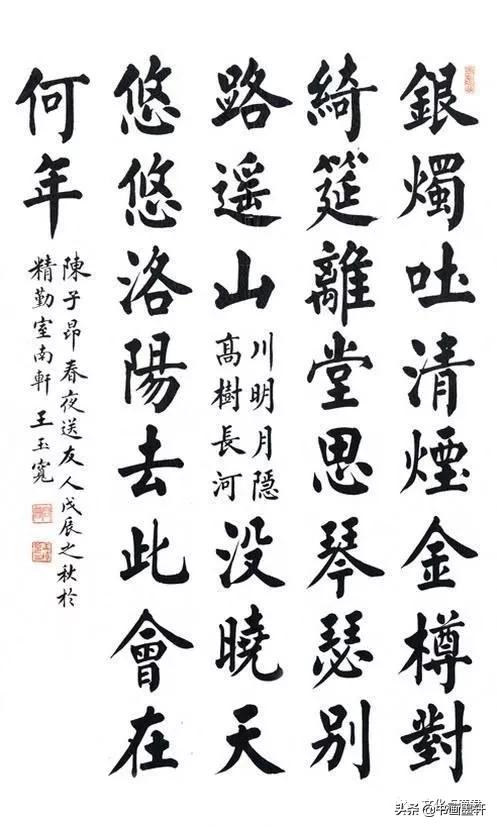 銀燭吐清煙金樽對
綺筵離堂思琴瑟別
路遥山
川明月隱
髙樹長河
没曉天
悠悠洛陽去此會在
何年
陳子昂春夜送友人戊辰之秋於
精勤室南軒王玉寬
头条 @书画墨轩